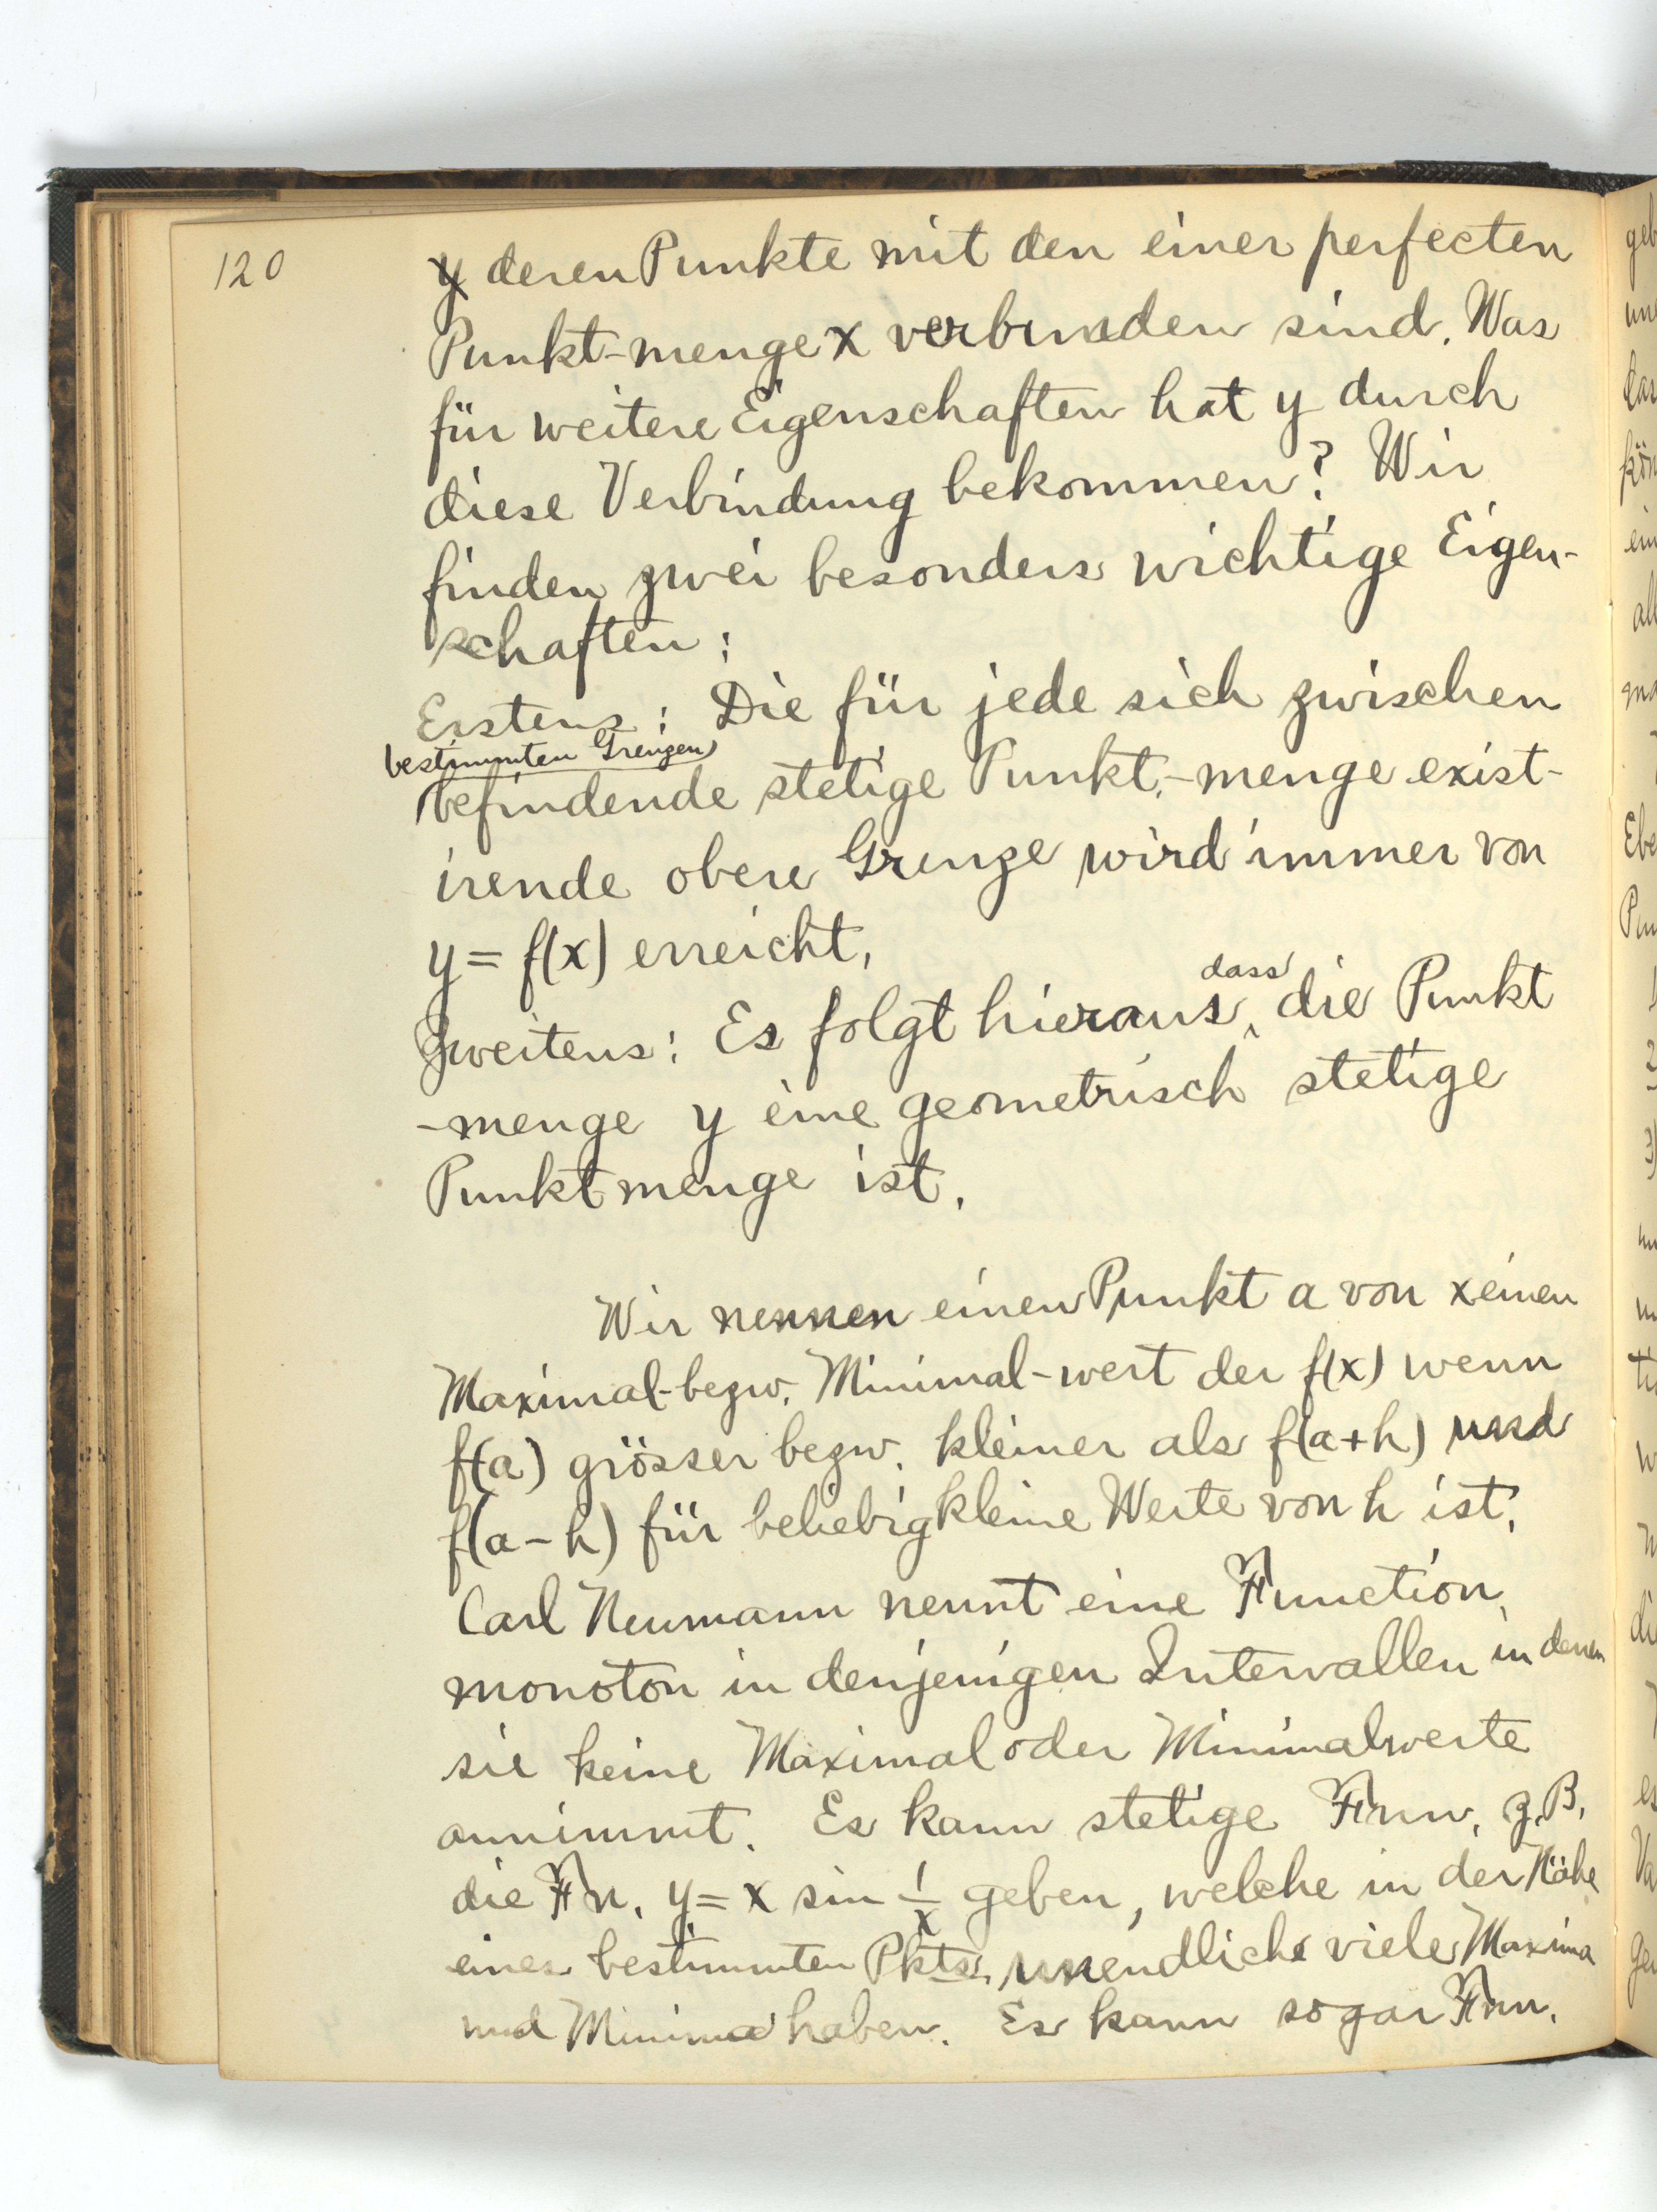 120
y deren Punkte mit den einer perfecten
Punkt-menge x verbunden sind. Was
für weitere Eigenschaften hat y durch
diese Verbindung bekommen? Wir
finden zwei besonders wichtige Eigen-
schaften:
Erstens: Die für jede sich zwischen
bestimmten Grenzen
befindende stetige Punkt-menge exist-
irende obere Grenze wird immer von
y = f(x) erreicht.
dass
Zweitens: Es folgt hieraus, die Punkt
-menge y eine geometrisch stetige
Punktmenge ist.
Wir nennen einen Punkt a von x einen
Maximal-bezw. Minimal-wert der f(x) wenn
f(a) grösser bezw. kleiner als f(a+h) und
f(a-h) für beliebig kleine Werte von h ist.
Carl Neumann nennt eine Function
monoton in denjenigen Intervallen in denen
sie keine Maximal oder Minimalwerte
annimmt. Es kann stetige Fnn. z.B.
die Fn. y = x sin 1/x geben, welche in der Nähe
eines bestimmten Pkts. unendlich viele Maxima
und Minima haben. Es kann sogar Fnn.